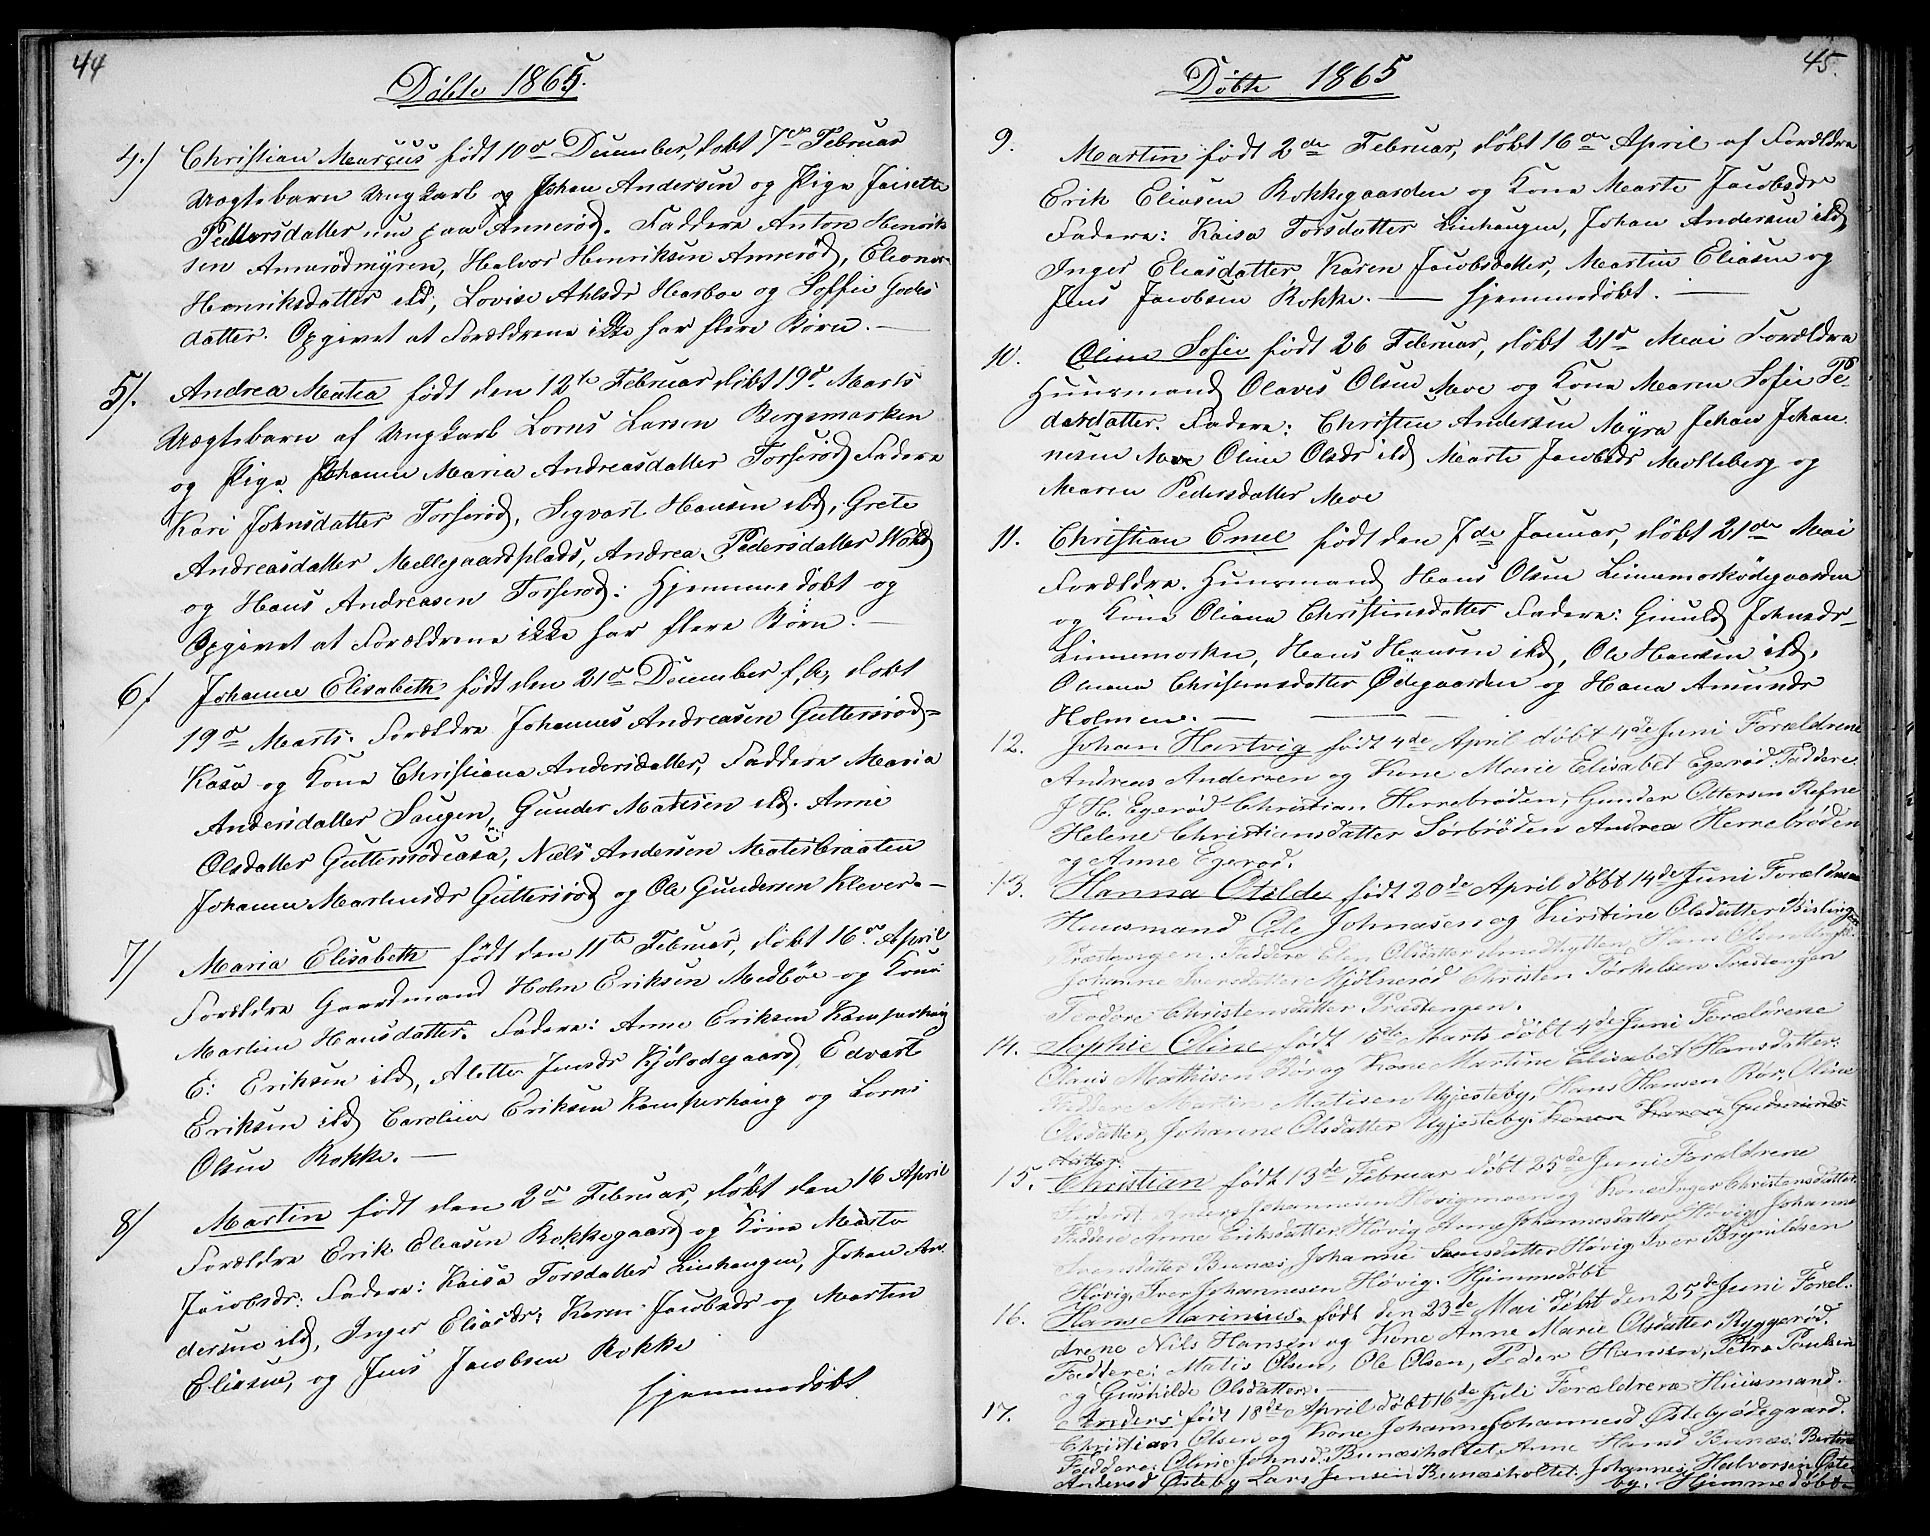 44
Döbte 1865.
4.) Christian Marçus födt 10de December, döbt 7de Februar
Uægtebarn Ungkarl og Johan Andersen og Pige Jaisette
Pettersdatter um paa Annerød. Faddere Anton Henrik-
sen Annerödmyren, Halvor Henriksen Anneröd, Eleonor
Henriksdatter ibd, Lovise Ahlsdr Harboe og Soffie
datter. Opgivet at Forældrene ikke har flere Börn. —
5). Andrea Matea födt den 12te Februar döbt 19de Marts
Uægtebarn af Ungkarl Lorns Larsen Bergsmarken
og Pige Johanne Maria Andreasdatter Torseröd Fadere
Kari Johnsdatter Torseröd, Sigvart Hansen ibd, Grete
Andreasdatter Mellegaardsplads, Andrea Pedersdatter Wold
og Hans Andreasen Torseröd. Hjemmedöbt og
Opgivet at Forældrene ikke har flere Börn. —
6/ Johanne Elisabeth födt den 21de December f.A. döbt
19de Marts. Forældre Johannes Andreasen Gutteröd-
Kasa og Kone Christiana Andersdatter, Faddere Maria
Andersdatter Haugen, Gunder Matisen ibd. Anne
Olsdatter Gutterödcasa, Niels Andersen Matesbraaten
Johanne Marhusdr Gutteröd og Ole Gundersen Klever. —
7/ Maria Elisabeth födt den 11te Februar, döbt 16de April
Forældre Gaardmand Holm Eriksen Medböe og Kone
Martine Hansdatter. Fadere: Anne Eriksen Kamperhaug
E: Eriksen ibd, Alette Jensdr Kjölödegaard, Edvart
Eriksen ibd Caroline Eriksen Kamperhaug og Lorns
Olsen Rokke. —
8/ Martin födt den 2de Februar, döbt den 16 April
Forældre Erik Eliasen Rokkegaard og Kone Marte
Jacobsdr: Fadere: Kaisa Torsdatter Linhaugen, Johan An-
dersen ibd, Inger Eliasdr: Karen Jacobsdr og Martin
Eliasen, og Jens Jacobsen Rokke
Hjemmedöbt
45.
Döbte 1865
9. Martin födt 2de Februar, döbt 16de April af Forældre
Erik Eliasen Rokkegaarden og Kone Marte Jacobsdr
Fadere: Kaisa Torsdatter Linhaugen, Johan Andersen ibd
Inger Eliasdatter Karen Jacobsdatter, Martin Eliasen og
Jens Jacobsen Rokke. — Hjemmedöbt. —
10. Oline Sofie födt 26 Februar, döbt 21de Mai Forældre
Huusmand Olaves Olsen Moe og Kone Maren Sofie Pe-
dersdatter. Fadere: Christen Andersen Myra Johan Johan-
nesen Moe Oline Olsdr ibd Marte Jacobsdr Molteberg og
Maren Pedersdatter Moe
11. Christian Emel födt den 7de Januar, döbt 21de Mai
Forældre. Huusmand Hans Olsen Linnemarködegaarden
og Kone Oliana Christiansdatter Fadere: Gunild Johnsdr
Linnemarken, Hans Hansen ibd, Ole Hansen ibd,
Oleana Christiansdatter Ödegaarden og Hana Amundr
Holmen. — — —
12. Johan Hartvig födt 4de April döbt 4de Juni Forældrene
Andreas Andersen og Kone Marie Elisabet Egeröd. Faddere
J. H. Egeröd Christian Herrebröden, Gunder Ottersen Refne
Helene Christiansdatter Sörbröden Andrea Herrebröden
og Anne Egeröd.
13. Hanna Otilde födt 20de April döbt 14de Juni Forældrene
Huusmand Ole Johnasen og Kirstine Olsdatter Bisling
Præstengen. Faddere Elen Olsdatter Smedhytten, Hans Olsen
Johanne Iversdatter Mjölneröd Christen Torkelsen Præstengen
Teodore Christensdatter Præstengen.
14. Sophie Oline födt 15de Marts döbt 4de Juni Forældrene
Olaus Mathisen Rör og Kone Martine Elisabet Hansdatter:
Faddere Martin Matisen Ugjesteby, Hans Hansen Rör, Oline
Olsdatter, Johanne Olsdatter Ugjesteby. Gudmunds-
datter.
15. Christian födt 13de Februar döbt 25de Juni Forældrene
Johannesen Hövigmoen og Kone Inger Christensdatter
Faddere Anne Eriksdatter Hövig Anne Johannesdatter Hövig, Johanne
Svensdatter Bunæs, Johanne datter Hövig. Iver Brynildsen
Hövig, Iver Johannesen Hövig. Hjemmedöbt
16. Hans Marinius. födt den 23de Mai döbt den 25de Juni Foræl-
drene Nils Hansen og Kone Anne Marie Olsdatter Ryggeröd.
Faddere: Matis Olsen, Ole Olsen, Peder Hansen, Petra Paulsen
og Gunhilde Olsdatter. —
17. Anders födt 18de April döbt 16de Juli Forældrene Huusmand.
Christian Olsen og Kone Johanne Johannesd. Östebyödegaard.
Faddere: Oline Johnsd. Bunæsholtet, Anne Hansd Bunæs. Bertine
Andersd Östeby Lars Jensen Bunæsholtet. Johannes Halvorsen Öste-
by. Hjemmedöbt.